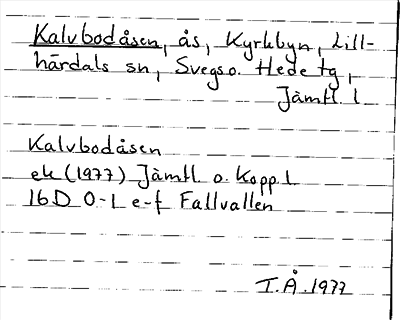 Kalvbodåsen, ås, Kyrkbyn, Lill-
härdals sn, Svegs o. Hede tg,
Jämtl. l
Kalvbodåsen
ek (1977) Jämtl. o. Kopp. l.
16D 0-1 e-f Fallvallen
T.Å. 1977